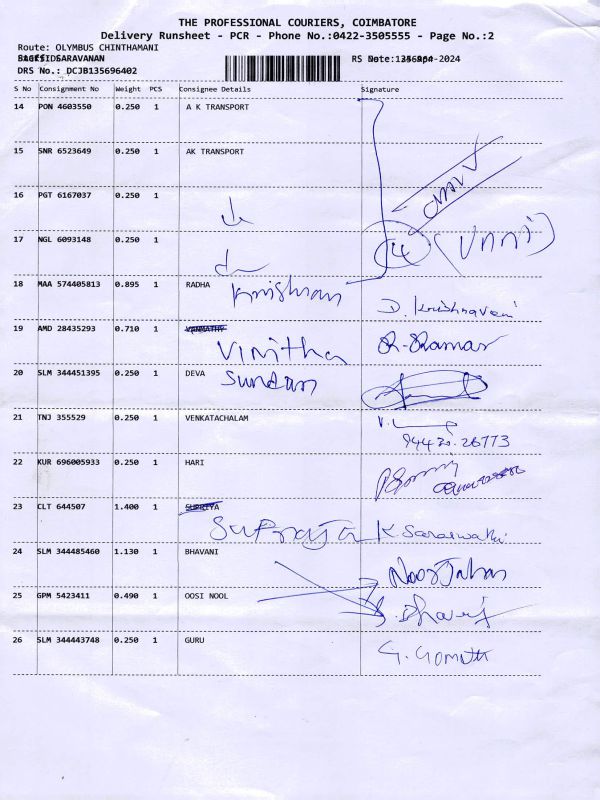 THE PROFESSIONAL COURIERS, COIMBATORE
Delivery Runsheet - PCR - Phone No.:0422-3505555 - Page No.:2
Route: OLYMBUS CHINTHAMANI
SARAVANAN RS Date: Apr-2024
DRS No.: DCJB135696402
S No Consignment No Weight PCS Consignee Details Signature
14 PON 4603550 0.250 1 A K TRANSPORT
15 SNR 6523649 0.250 1 AK TRANSPORT
16 PGT 6167037 0.250 1
17 NGL 6093148 0.250 1 4 (Unni)
18 MAA 574405813 0.895 1 RADHA
Krishnan D. Krishnaveni
19 AMD 28435293 0.710 1
Vinitha R. Raman
20 SLM 344451395 0.250 1 DEVA
Sundan
21 TNJ 355529 0.250 1 VENKATACHALAM
94430.26773
22 KUR 696005933 0.250 1 HARI
23 CLT 644507 1.400 1 SUPRIYA
Supraja K Saraswathi
24 SLM 344485460 1.130 1 BHAVANI
Noor Jahan
25 GPM 5423411 0.490 1 OOSI NOOL
26 SLM 344443748 0.250 1 GURU
G. Gomathi